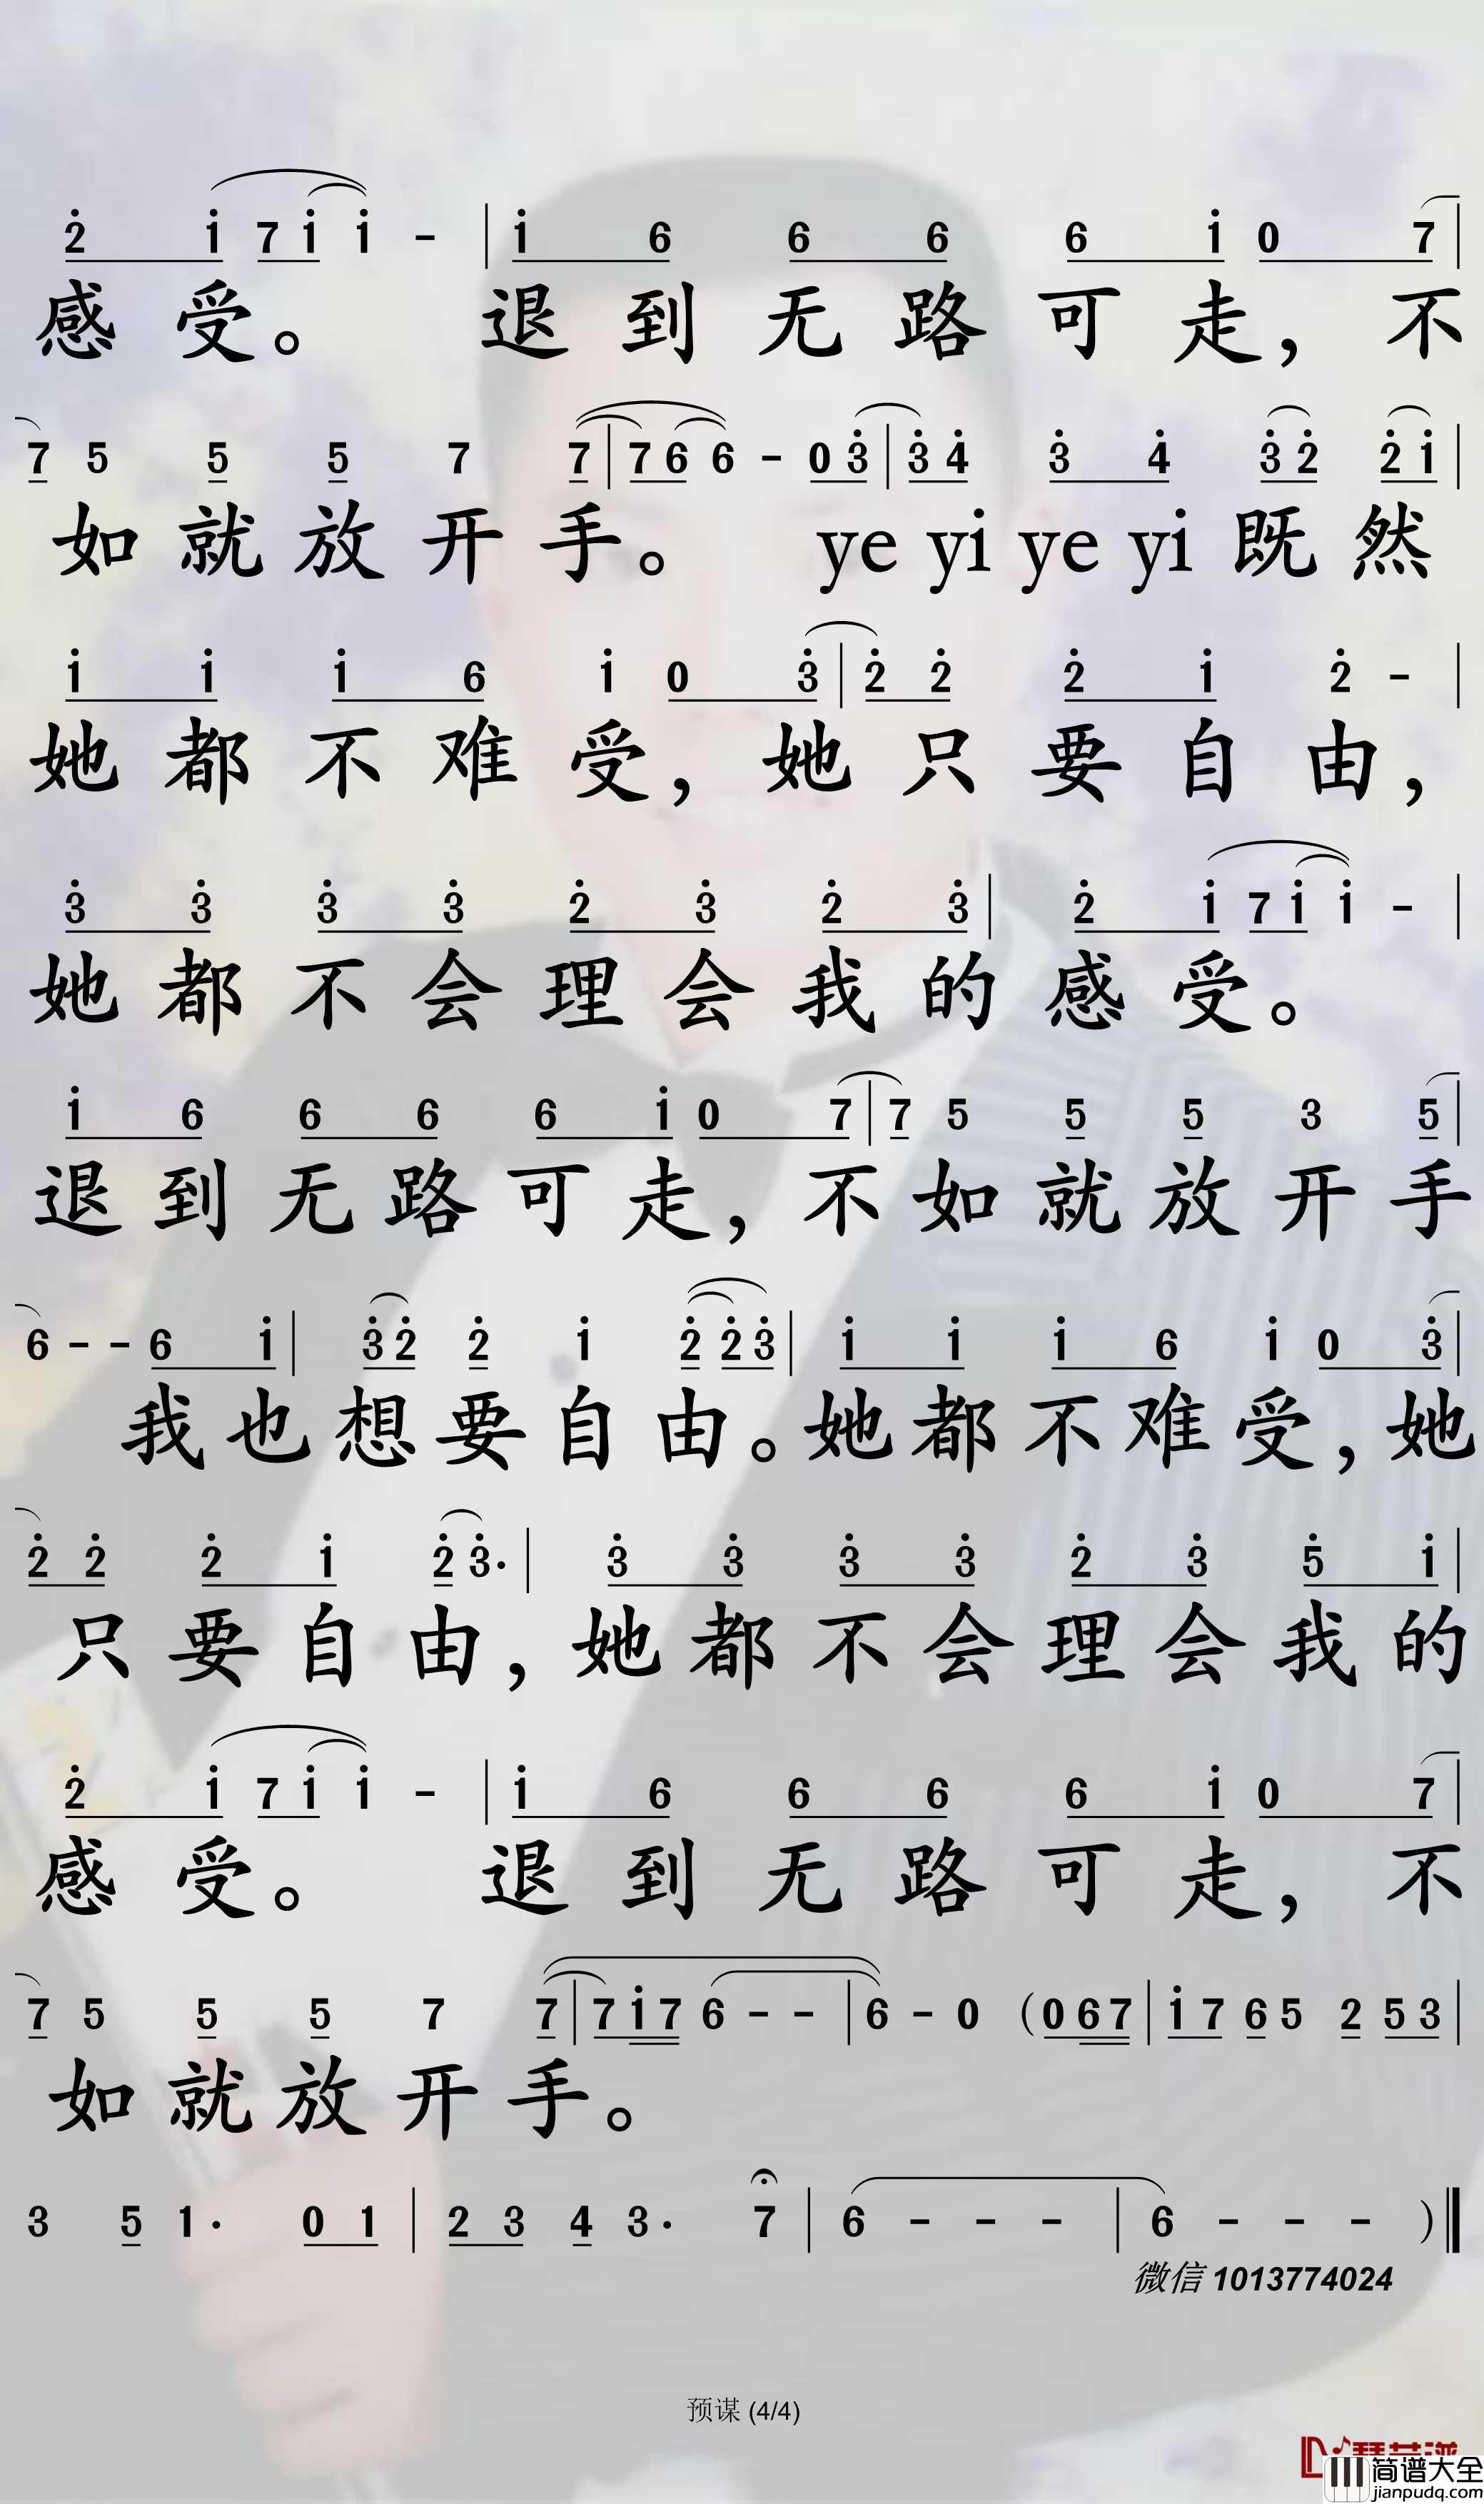 2̇ 1̇ 7 1̇ 1̇ - | 1̇ 6 6 6 6 1̇ 0 7 |
感受。 退到无路可走，不
7 5 5 5 7 7 | 7 6 6 - 0 3̇ | 3̇ 4̇ 3̇ 4̇ 3̇ 2̇ 2̇ 1̇ |
如就放开手。 ye yi ye yi 既然
1̇ 1̇ 1̇ 6 1̇ 0 3̇ | 2̇ 2̇ 2̇ 1̇ 2̇ - |
她都不难受，她只要自由，
3̇ 3̇ 3̇ 3̇ 2̇ 3̇ 2̇ 3̇ | 2̇ 1̇ 7 1̇ 1̇ - |
她都不会理会我的感受。
1̇ 6 6 6 6 1̇ 0 7 | 7 5 5 5 3 5 |
退到无路可走，不如就放开手
6 - - 6 1̇ | 3̇ 2̇ 2̇ 1̇ 2̇ 2̇ 3̇ | 1̇ 1̇ 1̇ 6 1̇ 0 3̇ |
我也想要自由。她都不难受，她
2̇ 2̇ 2̇ 1̇ 2̇ 3̇· | 3̇ 3̇ 3̇ 3̇ 2̇ 3̇ 5̇ 1̇ |
只要自由，她都不会理会我的
2̇ 1̇ 7 1̇ 1̇ - | 1̇ 6 6 6 6 1̇ 0 7 |
感受。 退到无路可走，不
7 5 5 5 7 7 | 7 1̇ 7 6 - - | 6 - 0 (0 6 7 | 1̇ 7 6 5 2 5 3 |
如就放开手。
3 5 1· 0 1 | 2 3 4 3· 7 | 6 - - - | 6 - - - )‖
微信 1013774024
预谋 (4/4)
简谱大全
jianpudq.com